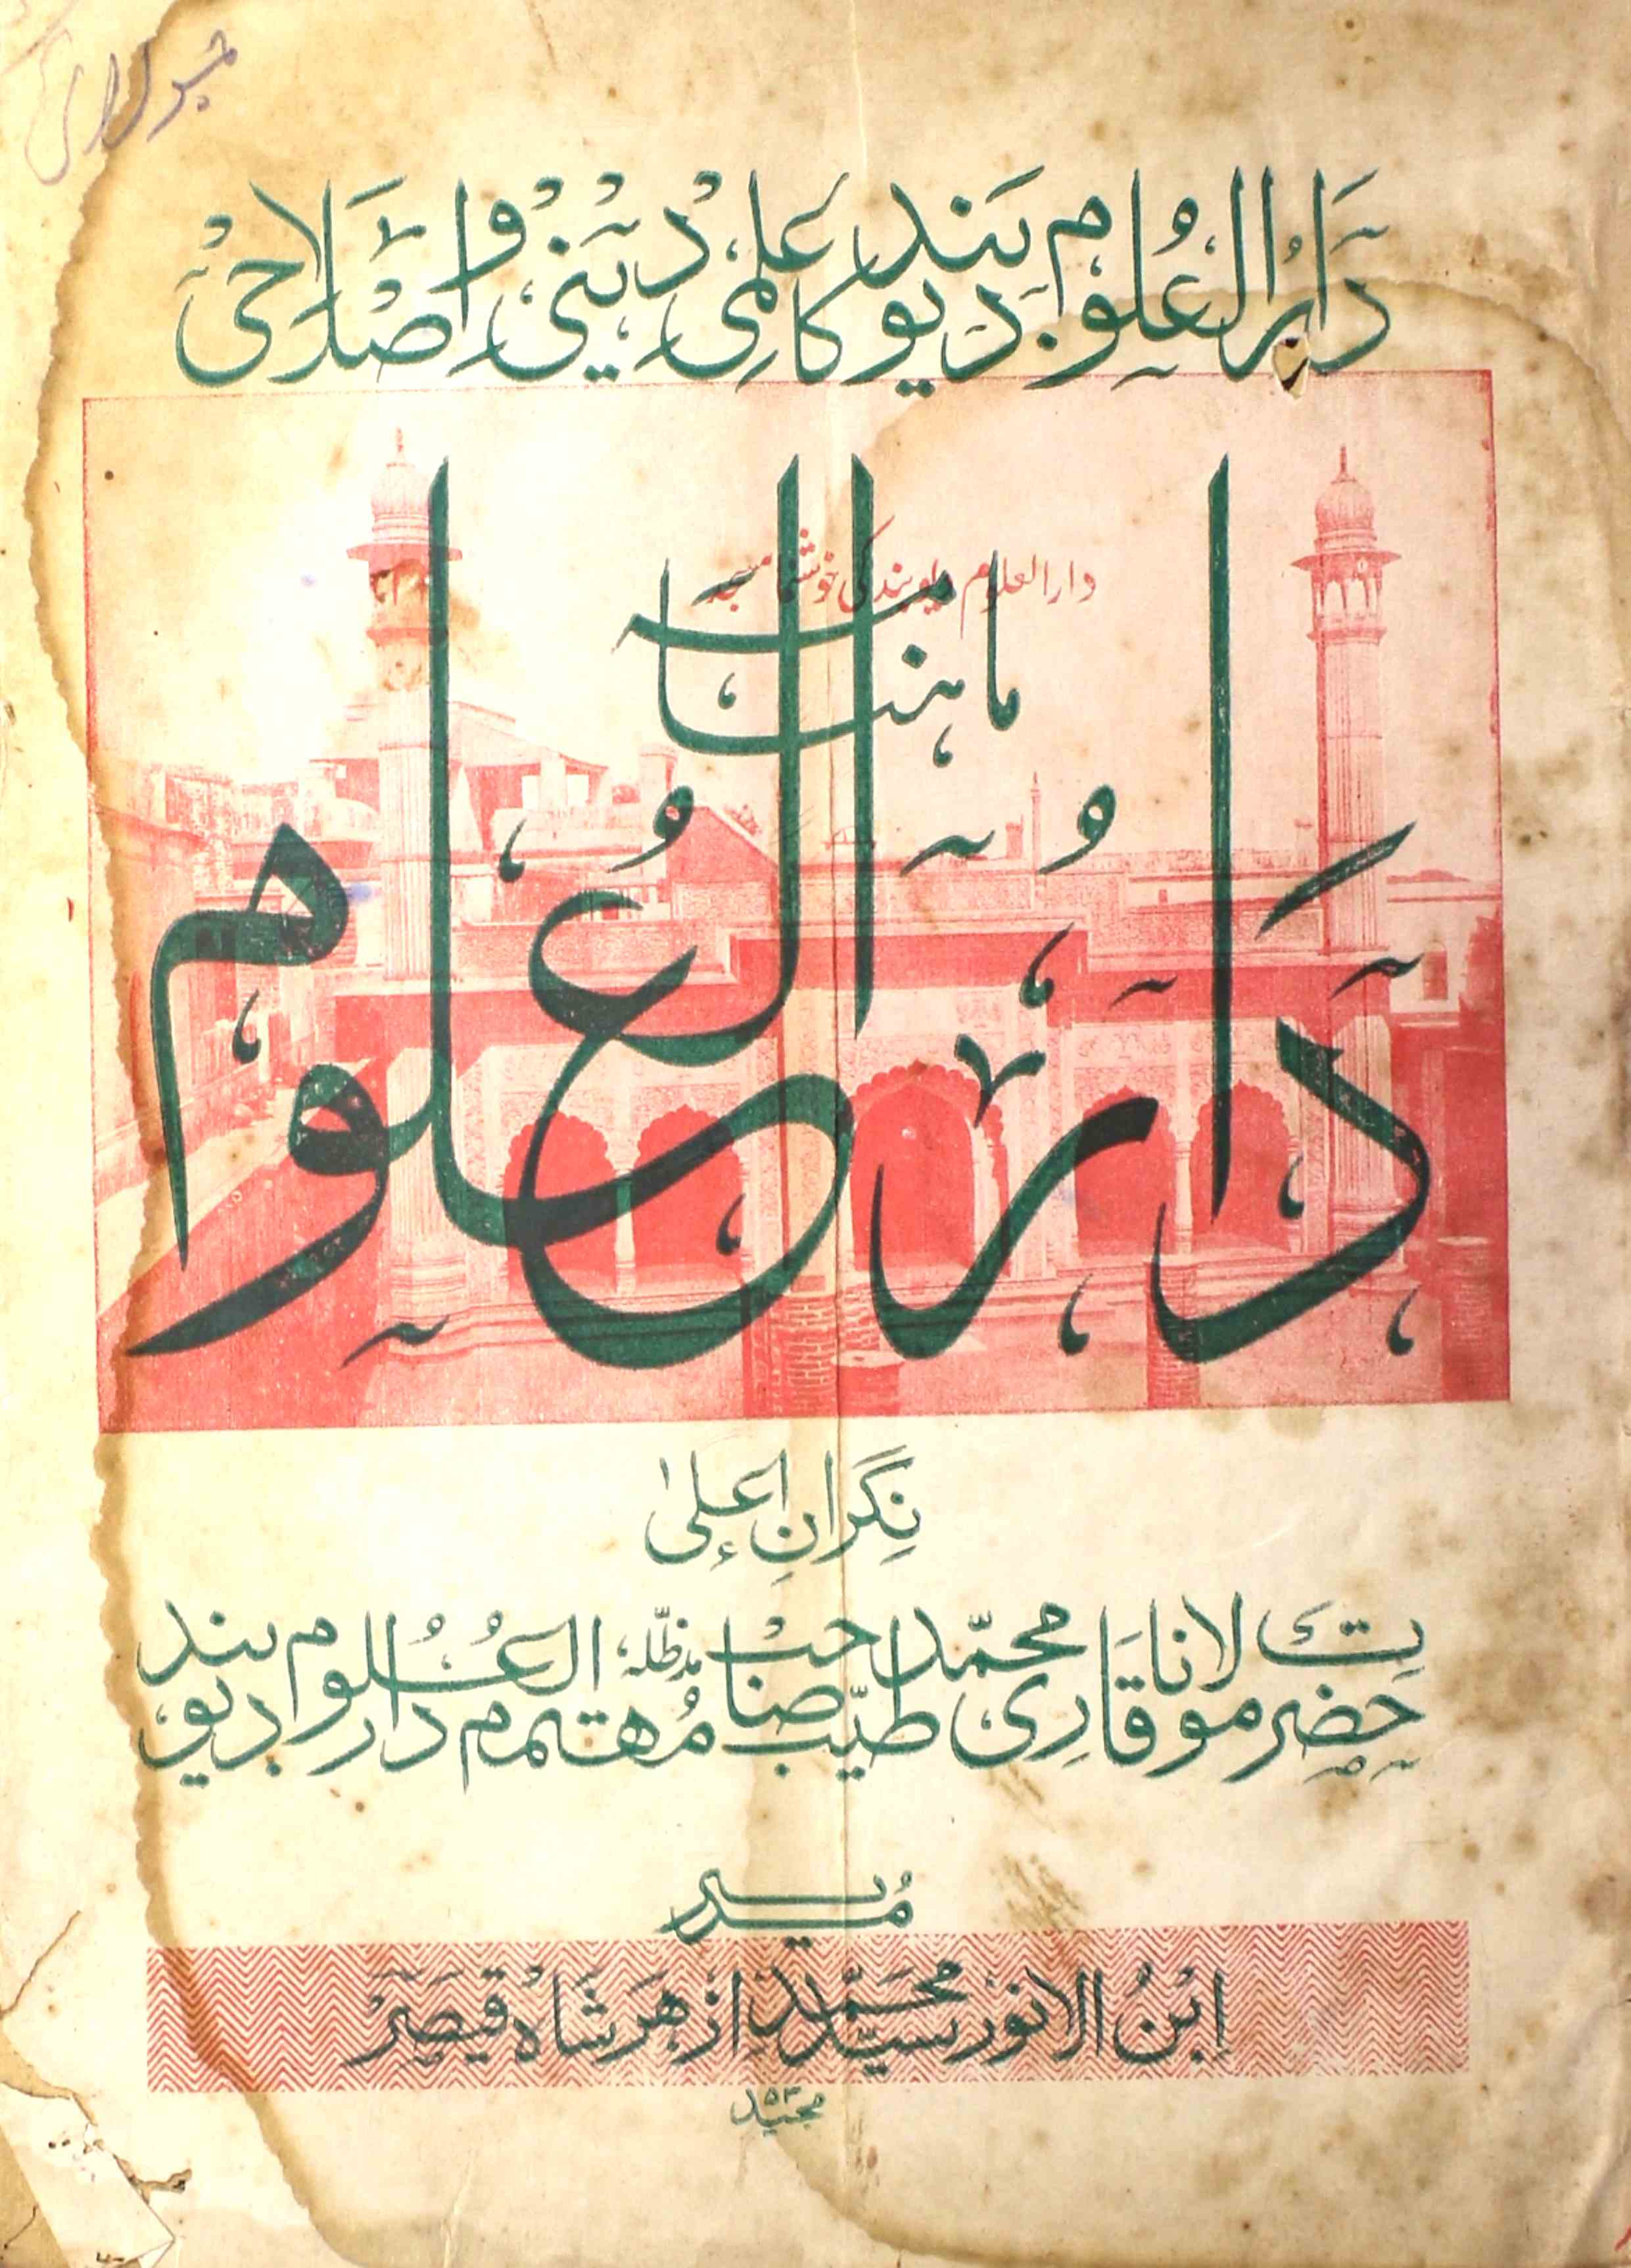 دار العلوم دیوبند کا علمی دینی و اصلاحی
دارالعلوم دیوبند کی خوشنما مسجد
ماہنامہ
دار العلوم
نگرانِ اعلیٰ
حضرت مولانا قاری محمد طیب صاحب مدظلہ مہتمم دار العلوم دیوبند
مدیر
ابن الانور سید محمد ازہر شاہ قیصر
مجید ۵۳